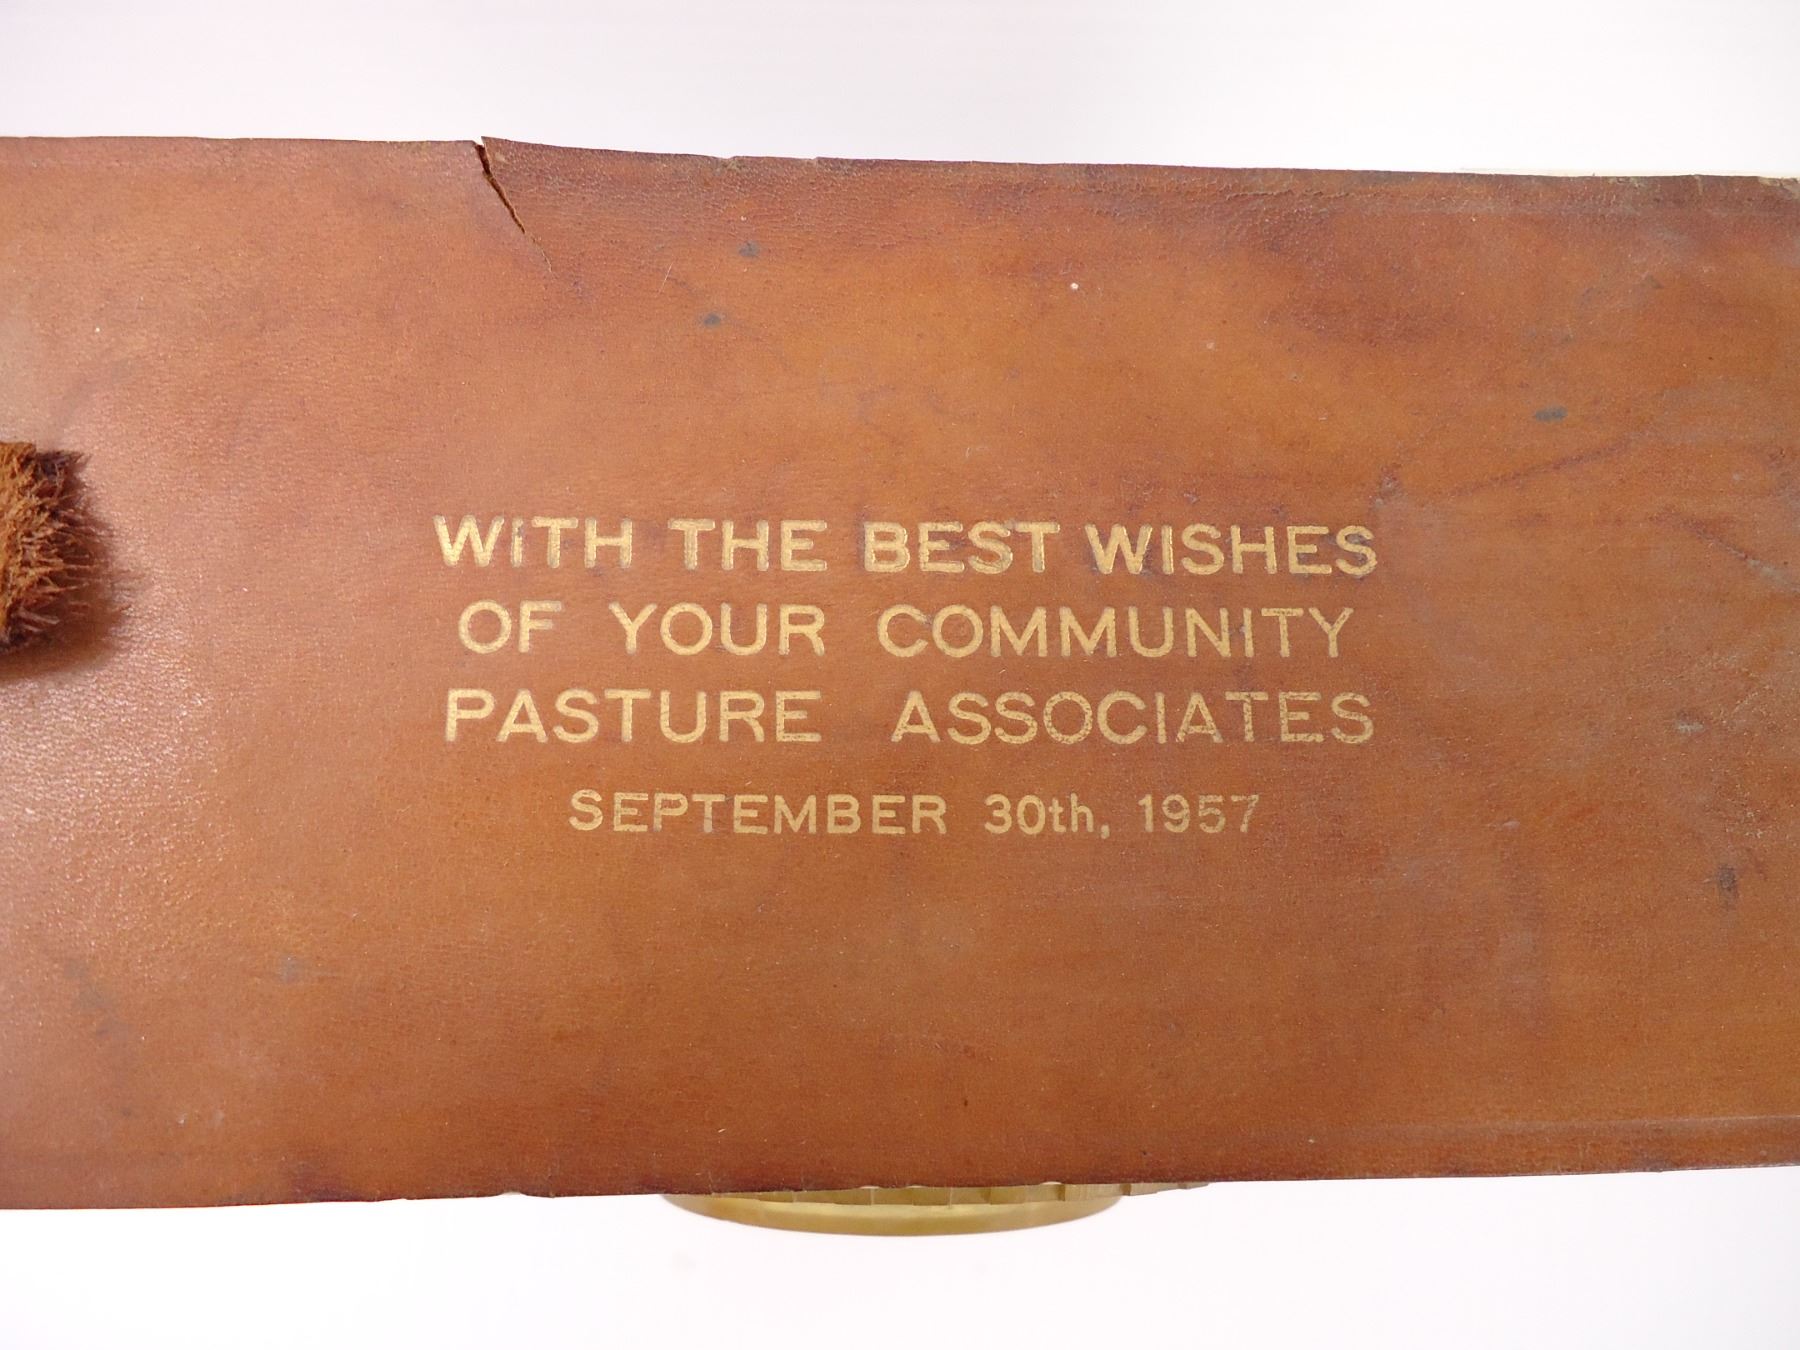 WiTH THE BEST WISHES
OF YOUR COMMUNITY
PASTURE ASSOCIATES
SEPTEMBER 30th, 1957